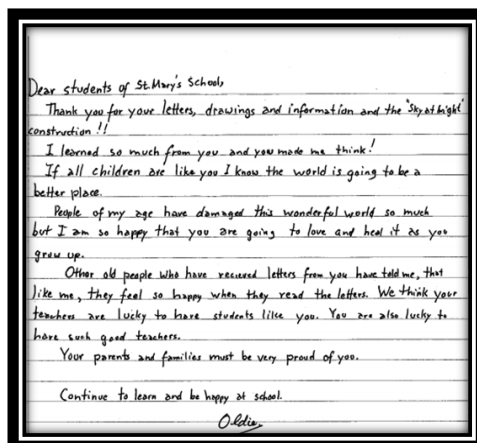 Dear students of St. Mary's School,
Thank you for your letters, drawings and information and the "Sky at Night"
construction !!
I learned so much from you and you made me think!
If all children are like you I know the world is going to be a
better place.
People of my age have damaged this wonderful world so much
but I am so happy that you are going to love and heal it as you
grow up.
Other old people who have recieved letters from you have told me, that
like me, they feel so happy when they read the letters. We think your
teachers are lucky to have students like you. You are also lucky to
have such good teachers.
Your parents and families must be very proud of you.
Continue to learn and be happy at school.
Oldie